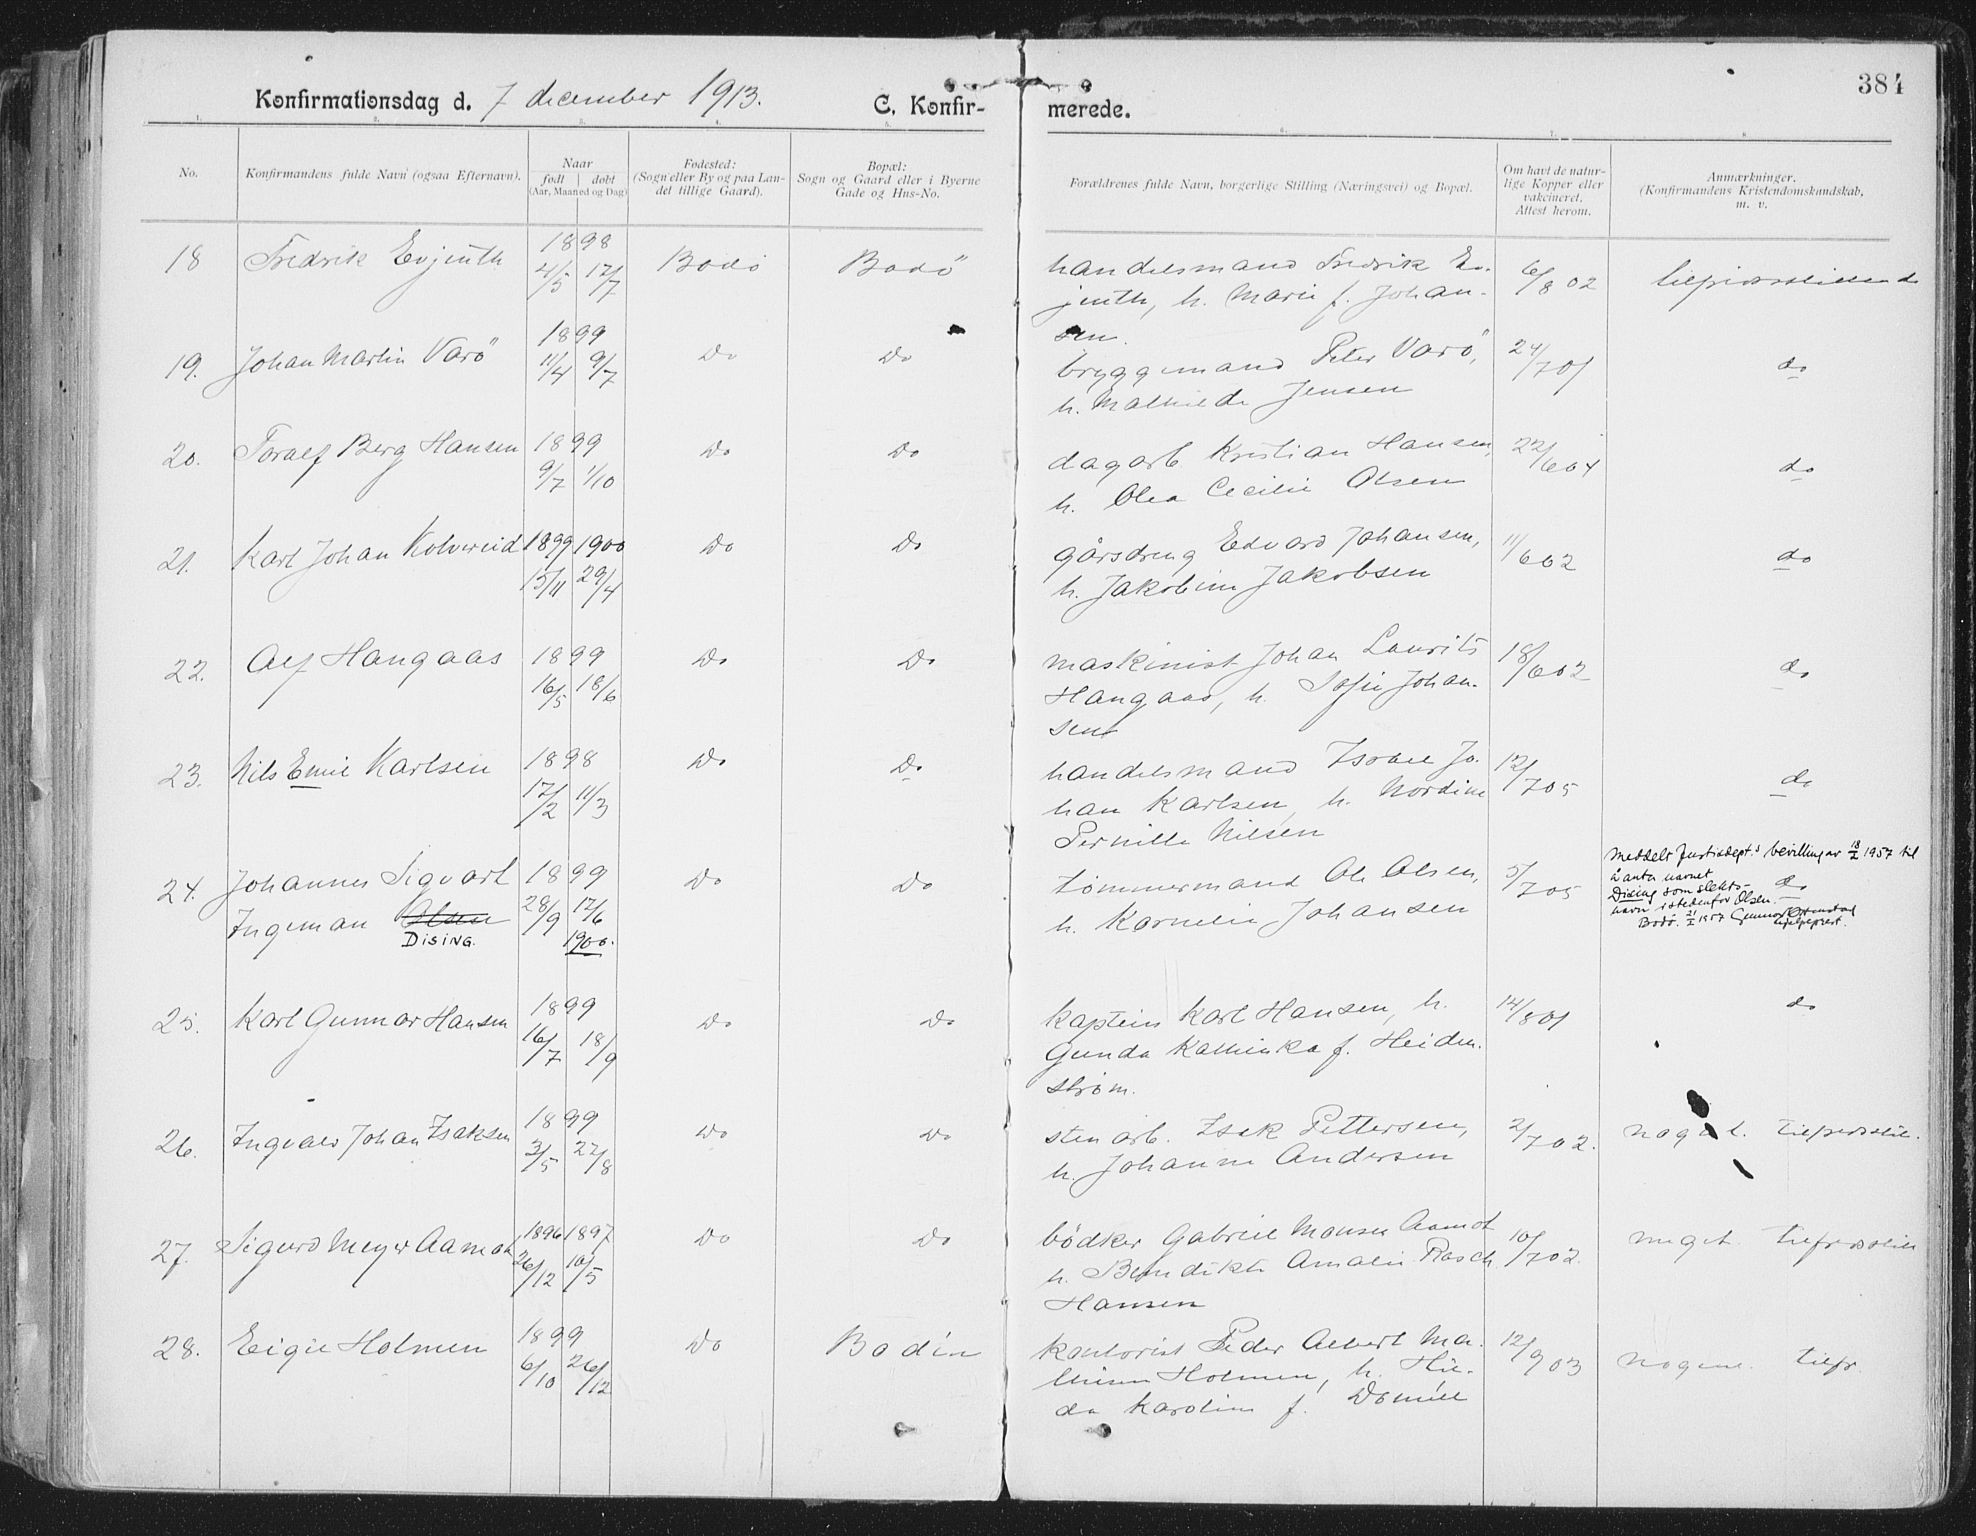 384
Konfirmationsdag d. 7 december 1913. C. Konfir- merede.
1. 2. 3. 4. 5. 6. 7. 8.
No.
Konfirmandens fulde Navn (ogsaa Efternavn).
Naar
født | døbt
(Aar, Maaned og Dag)
Fødested:
(Sogn eller By og paa Lan-
det tillige Gaard).
Bopæl:
Sogn og Gaard eller i Byerne
Gade og Hus-No.
Forældrenes fulde Navn, borgerlige Stilling (Næringsvei) og Bopæl.
Om havt de natur-
lige Kopper eller
vakcineret.
Attest herom.
Anmærkninger.
(Konfirmandens Kristendomskundskab,
m. v.
18 Fredrik Evjenth 1898 4/5 17/7 Bodö Bodö
handelsmand Fredrik Ev- 6/8 02 tilfredsstillende
jenth, h. Marie f. Johan-
sen.
19. Johan Martin Varö 1899 11/4 9/7 Do Do
bryggemand Peter Varö, 24/7 01 do
h. Mathilde Jensen
20. Toralf Berg Hansen 1899 9/7 1/10 Do Do
dagarb. Kristian Hansen, 22/6 04 do
h. Olea Cecilie Olsen
21. Karl Johan Kolvereid 1899 1900 15/11 29/4 Do Do
gårsdreng Edvard Johansen, 11/6 02 do
h. Jakobine Jakobsen
22. Alf Hangaas 1899 16/5 18/6 Do Do
maskinist Johan Laurits 18/6 02 do
Hangaas, h. Sofie Johan-
sen
23. Nils Emil Karlsen 1898 17/2 11/3 Do Do
handelsmand Israel Jo- 12/7 05 do
han Karlsen, h. Nordine
Pernille Nilsen
24. Johannes Sigvart 1899 28/9 17/6 1900. Do Do
Ingeman Olsen
DISING.
tømmermand Ole Olsen, 5/7 05 do
h. Kornelie Johansen
Meddelt Justisdept.s bevilling av 18/2 1957 til
å anta navnet
Dising som slekts-
navn istedenfor Olsen.
Bodø. 21/2 1957 Gunnar
hjelpeprest.
25. Karl Gunnar Hansen 1899 16/7 18/9 Do Do
kaptein Karl Hansen, h. 14/8 01 do
Gunda Kathinka f. Heiden-
strøm.
26. Ingvald Johan Isaksen 1899 3/5 27/8 Do Do
stenarb. Isak Pettersen, 2/7 02. tilfredsstil.
h. Johanne Andersen
27. Sigurd Meyer Aamot 1896 1897 26/12 10/5 Do Do
bödker Gabriel Monsen Aamot 10/7 02. meget tilfredsstill
h. Benedikte Amalie Rasch
Hansen
28. Eigil Holmen 1899 6/10 26/12 Do Bodin
kontorist Peder Albert Ma- 12/9 03 nogenl. tilfr.
thisen Holmen, h. Hil-
da Karoline f. Domill